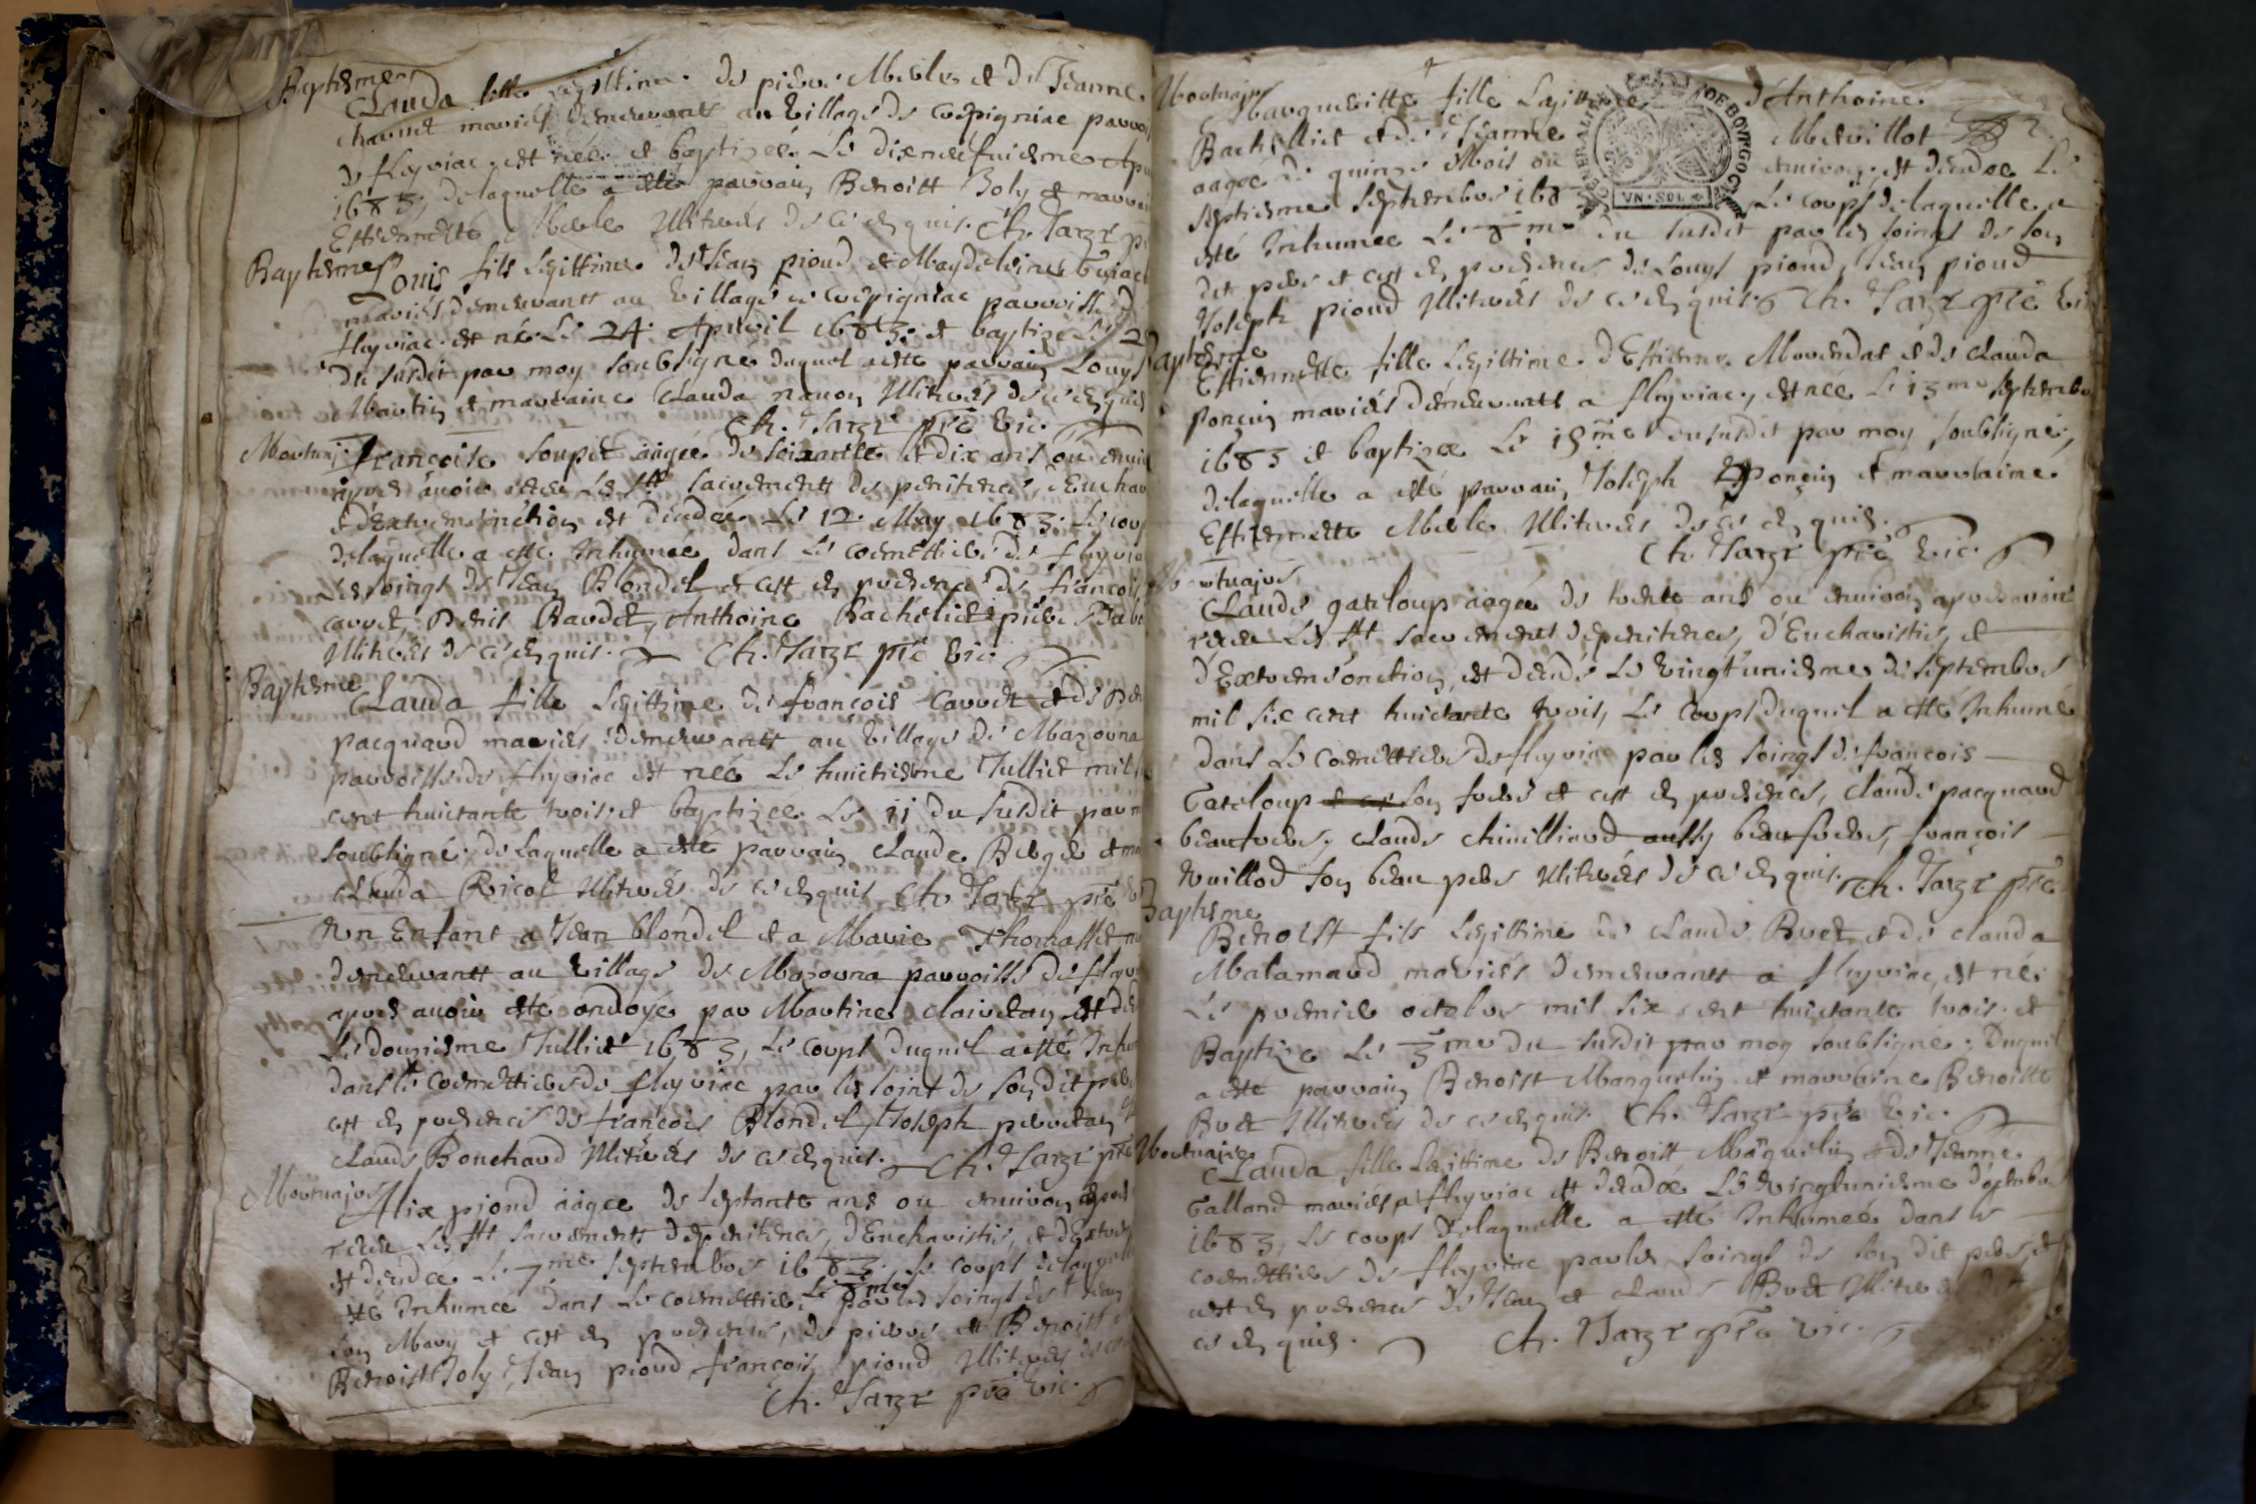 Baptesme
Clauda fille Legittime de pierre Merle et de Jeanne
chavnet mariés demeurants au village de Cospigniac parroi
de fleyriac est née et baptizée Le dixneufuiesme Apu
1683, delaquelle a esté parrain Benoist Joly et marrai
Estiennette Merle illiterés de ce enquis. Ch. Sarze p
Baptesme
Louis fils Legittime de Jean pioud et Magdeleine
mariés demeurantt au village de Cospigniac parroisse d
fleyriac est né Le 24. Apuril 1683. et baptizé Le 2
du susdit par moy soubsigné duquel a esté parrain Louys
Martin et marraine Clauda illiterés de ce enquis
Ch. Sarze pre vic.
Mortuaj.
françoise soupet aagée de soixante et dix ans ou enuir
apres auoir receu Les sts sacrements de penitence, d'Euchar
et d'extremonction est décedee Le 12. May 1683. Le corp
delaquelle a esté Inhumée dans Le coemettiere de fleyria
Les soings de Jean Blondel et cest en presence de françois
cauuet, Denis Baudet, Anthoine Bachelier pierre
illiterés de ce enquis. Ch. Sarze pre vic.
Baptesme
Clauda fille Legittime de françois Cauuet et de
pacquaud mariés demeurantt au village de Mazouna
parroisse de fleyriac est née Le huictiesme Julliet mil s
cent huictante trois, et baptizee Le 11 du susdit par m
soubsigné, de laquelle a esté parrain Claude Berger et ma
Clauda Ricol illiterés de ce enquis Ch. Sarze pre
Un Enfant a Jean blondel et a Marie Thomasset m
demeurantt au village de Mazouna parroisse de fleyr
apres auoir esté ondoyé par Martine Clairetan est dé
Le douziesme Julliet 1683, Le corps duquel a esté Inhu
dans le coemettiere de fleyriac par les soins de son dit pere
cest en presence de françois Blondel, Joseph perretan
Claude Bouchard illiterés de ce enquis. Ch. Sarze pre
Mortuajre
Alix pioud aagee de septante ans ou enuiron apres
receu Les sts sacrements de penitence, d'Eucharistie, et d'Extre
est decedée Le 7me septembre 1683. Le corps delaquelle
Le 8me
esté Inhumée dans Le coemettiere par les soings de Jean
son Mary et cest en presence, de pierre et Benoist
Benoist Joly, Jean pioud françois pioud illiterés de ce
Ch. Sarze pre vic.
Mortuajre
Margueritte fille Legittime d'Anthoine
Bachellier et de Jeanne Merillot
aagée de quinze Mois ou enuiron est décedee Le
septiesme septembre 168 Le corps delaquelle a
esté Inhumee Le 8me du susdit par les soings de son
dit pere et cest en presence de Louys pioud, Jean pioud
Joseph pioud illiterés de ce enquis. Ch. Sarze pre vi
GENERALITE DE BOVRGOGNE
VN SOL
Baptesme
Estiennette fille Legittime d'Estienne Morendat et de Clauda
ponçin mariés demeurants a fleyriac, est née Le 13me septembre
1683 et baptizee Le 15me du susdit par moy soubsigné,
delaquelle a esté parrain Joseph ponçin et marraine
Estiennette Merle illiterés de ce enquis.
Ch. Sarze pre vic.
Mortuajre
Claude gateloup aagée de trente ans ou enuiron apres auoir
receu Les sts sacrements de penitence, d'Eucharistie, et
d'Extremeonction, est decedé Le vingtuniesme de septembre
mil six cent huictante trois, Le Corps duquel a esté Inhumé
dans Le coemettiere de fleyriac par les soings de françois
Gateloup et ce son frere et cest en presence, Claude pacquaud
beaufrere, Claude chiuilliard aussy beaufrere, françois
son beau pere illiterés de ce enquis. Ch. Sarze pre
Baptesme
Benoist fils Legittime de Claude Buet, et de Clauda
Malamard mariés demeurantt a fleyriac, est né
Le premier octobre mil six cent huictante trois et
Baptize Le 3me du susdit par moy soubsigné: Duquel
a esté parrain Benoist Manguelin et marraine Benoiste
Buet illiterés de ce enquis. Ch. Sarze pre vic.
Mortuajre
Clauda fille Legittime de Benoist Manguelin et de Jeanne
Galland mariés a fleyriac est decedée Le vingtuniesme d'octobre
1683, Le corps delaquelle a esté Inhumée dans le
coemettiere de fleyriac par les soings de son dit pere, et
cest en presence de Jean et Claude Buet illiteres de
ce enquis. Ch. Sarze pre vic.